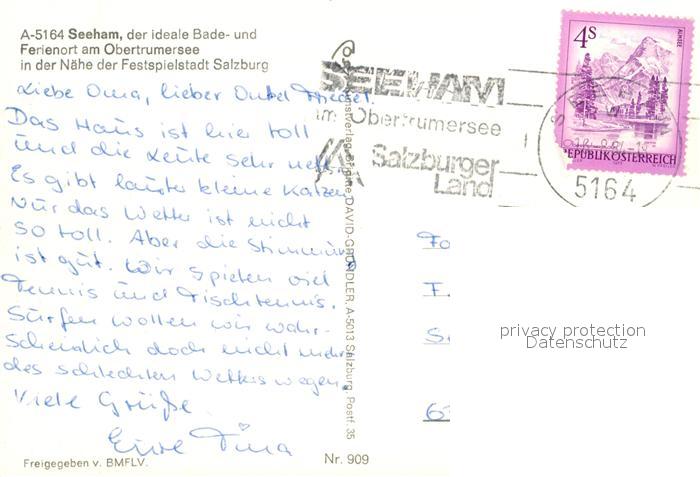 A-5164 Seeham, der ideale Bade- und
Ferienort am Obertrumersee
in der Nähe der Festspielstadt Salzburg
Liebe Oma, lieber Onkel
Das Haus ist hier toll
und die Leute sehr nett.
Es gibt lauter kleine Katzen
Nur das Wetter ist nicht
so toll. Aber die Stimmung
ist gut. Wir spielen viel
Tennis und Tischtennis.
Surfen wollen wir wahr-
scheinlich doch nicht mehr
des schlechten Wetters wegen.
Viele Grüße
Eure Tina
Freigegeben v. BMFLV.
Nr. 909
DAVID-GRÜNDLER, A-5013 Salzburg, Postf. 35
SEEHAM
im Obertrumersee
Salzburger
Land
4S
ALMSEE
REPUBLIK ÖSTERREICH
5164
privacy protection
Datenschutz